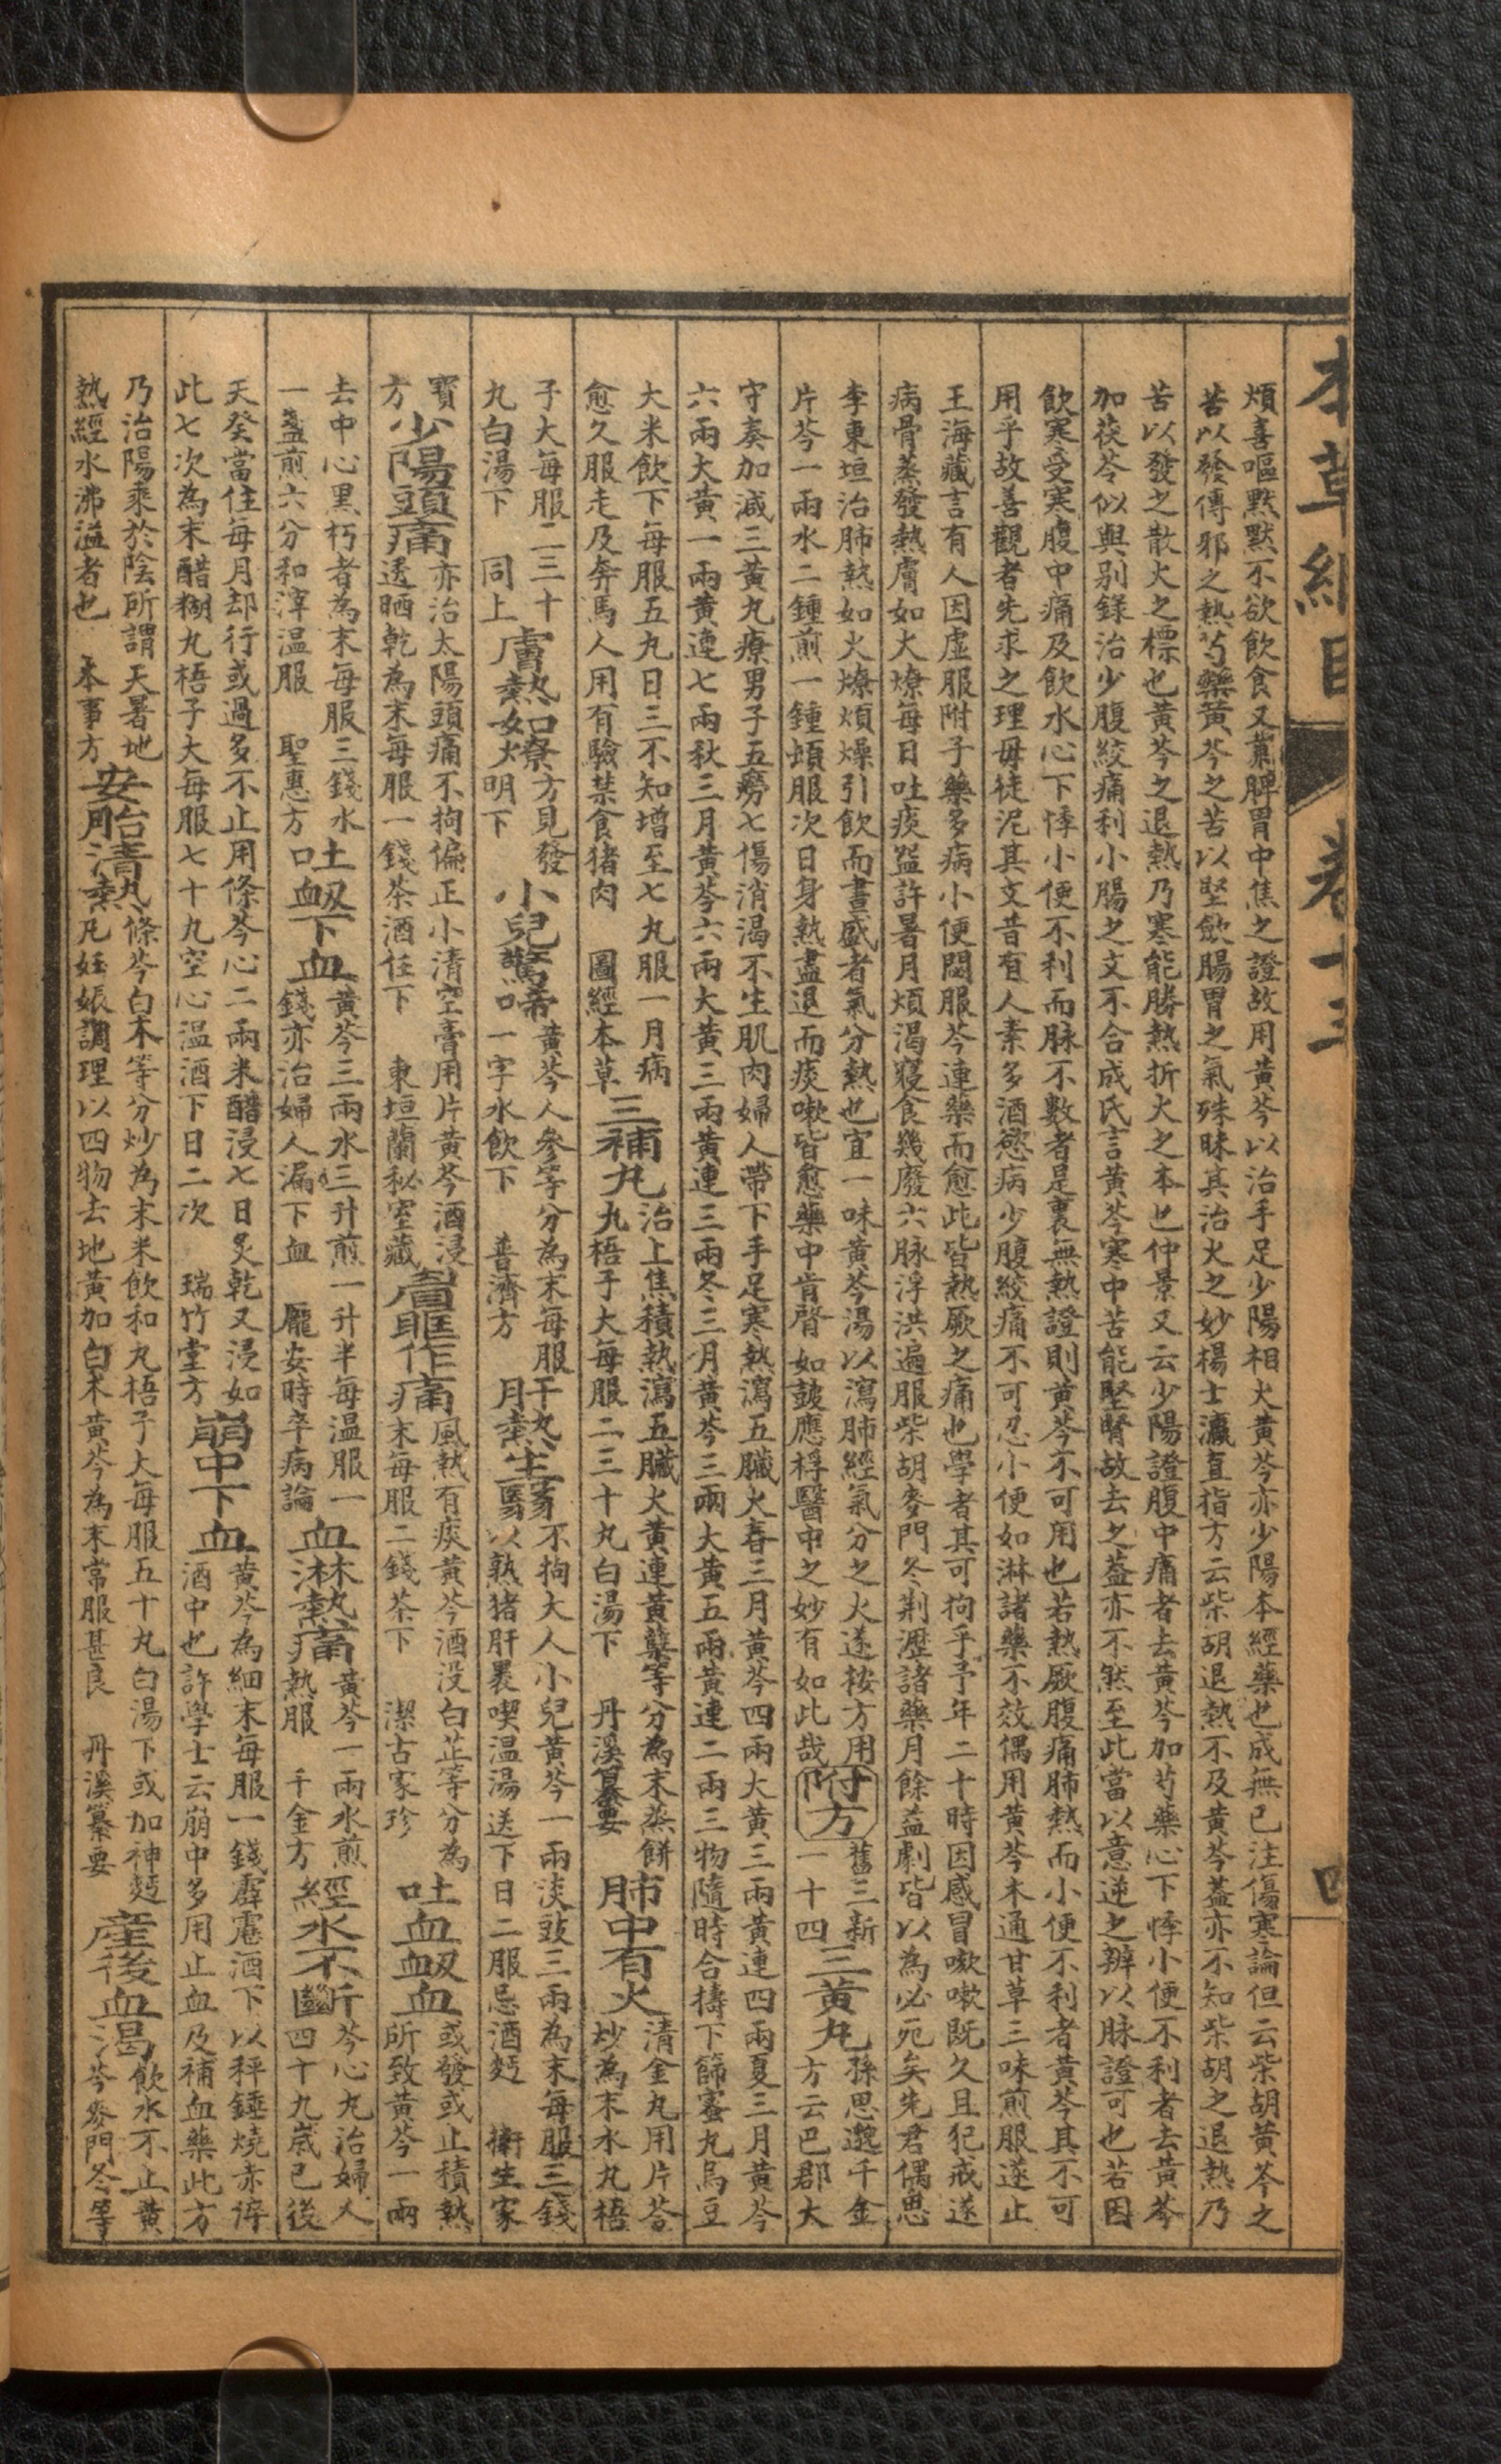 本草綱目 卷十三 四
煩喜嘔默默不欲飲食又兼脾胃中焦之證故用黃芩以治手足少陽相火黃芩亦少陽本經藥也成無已注傷寒論但云柴胡黃芩之
苦以發傳邪之熱芍藥黃芩之苦以堅歛腸胃之氣殊昧其治火之妙楊士瀛直指方云柴胡退熱不及黃芩葢亦不知柴胡之退熱乃
苦以發之散火之標也黃芩之退熱乃寒能勝熱折火之本也仲景又云少陽證腹中痛者去黃芩加芍藥心下悸小便不利者去黃芩
加茯苓似與别錄治少腹絞痛利小腸之文不合成氏言黃芩寒中苦能堅腎故去之葢亦不然至此當以意逆之辨以脉證可也若因
飲寒受寒腹中痛及飲水心下悸小便不利而脉不數者是裏無熱證則黃芩不可用也若熱厥腹痛肺熱而小便不利者黃芩其不可
用乎故善觀者先求之理毋徒泥其文昔有人素多酒慾病少腹絞痛不可忍小便如淋諸藥不效偶用黃芩木通甘草三味煎服遂止
王海藏言有人因虛服附子藥多病小便閟服芩連藥而愈此皆熱厥之痛也學者其可拘乎予年二十時因感冒嗽嗽既久且犯戒遂
病骨蒸發熱膚如火燎每日吐痰盌許暑月煩渴寢食幾廢六脉浮洪遍服柴胡麥門冬荆瀝諸藥月餘益劇皆以為必死矣先君偶思
李東垣治肺熱如火燎煩燥引飲而晝盛者氣分熱也宜一味黃芩湯以瀉肺經氣分之火遂按方用
片芩一兩水二鍾煎一鍾頓服次日身熱盡退而痰嗽皆愈藥中肯綮如鼓應桴醫中之妙有如此哉
附方
舊三新
一十四
三黃丸
孫思邈千金
方云巴郡太
守奏加減三黃丸療男子五勞七傷消渴不生肌肉婦人帶下手足寒熱瀉五臟火春三月黃芩四兩大黃三兩黃連四兩夏三月黃芩
六兩大黃一兩黃連七兩秋三月黃芩六兩大黃三兩黃連三兩冬三月黃芩三兩大黃五兩黃連二兩三物隨時合擣下篩蜜丸烏豆
大米飲下每服五丸日三不知增至七丸服一月病
愈久服走及奔馬人用有驗禁食猪肉 圖經本草
三補丸
治上焦積熱瀉五臟火黃連黃蘗等分為末蒸餅
丸梧子大每服二三十丸白湯下 丹溪纂要
肺中有火
清金丸用片芩
炒為末水丸梧
子大每服二三十
丸白湯下 同上
膚熱如燎
方見發
明下
小兒驚啼
黃芩人參等分為末每服
一字水飲下 普濟方
肝熱生翳
不拘大人小兒黃芩一兩淡豉三兩為末每服三錢
以熟猪肝裹喫温湯送下日二服忌酒麪 衛生家
寶
方
少陽頭痛
亦治太陽頭痛不拘偏正小清空膏用片黃芩酒浸
透晒乾為末每服一錢茶酒任下 東垣蘭秘室藏
眉眶作痛
風熱有痰黃芩酒没白芷等分為
末每服二錢茶下 潔古家珍
吐血衂血
或發或止積熱
所致黃芩一兩
去中心黑朽者為末每服三錢水
一盞煎六分和滓温服 聖惠方
吐衂下血
黃芩三兩水三升煎一升半每温服一
錢亦治婦人漏下血 龐安時卒病論
血淋熱痛
黃芩一兩水煎
熱服 千金方
經水不斷
芩心丸治婦人
四十九歲已後
天癸當住每月却行或過多不止用條芩心二兩米醋浸七日炙乾又浸如
此七次為末醋糊丸梧子大每服七十丸空心温酒下日二次 瑞竹堂方
崩中下血
黃芩為細末每服一錢霹靂酒下以秤錘燒赤淬
酒中也許學士云崩中多用止血及補血藥此方
乃治陽乘於陰所謂天暑地
熱經水沸溢者也 本事方
安胎清熱
條芩白朮等分炒為末米飲和丸梧子大每服五十丸白湯下或加神麯
凡妊娠調理以四物去地黃加白朮黃芩為末常服甚良 丹溪纂要
產後血渴
飲水不止黃
芩麥門冬等